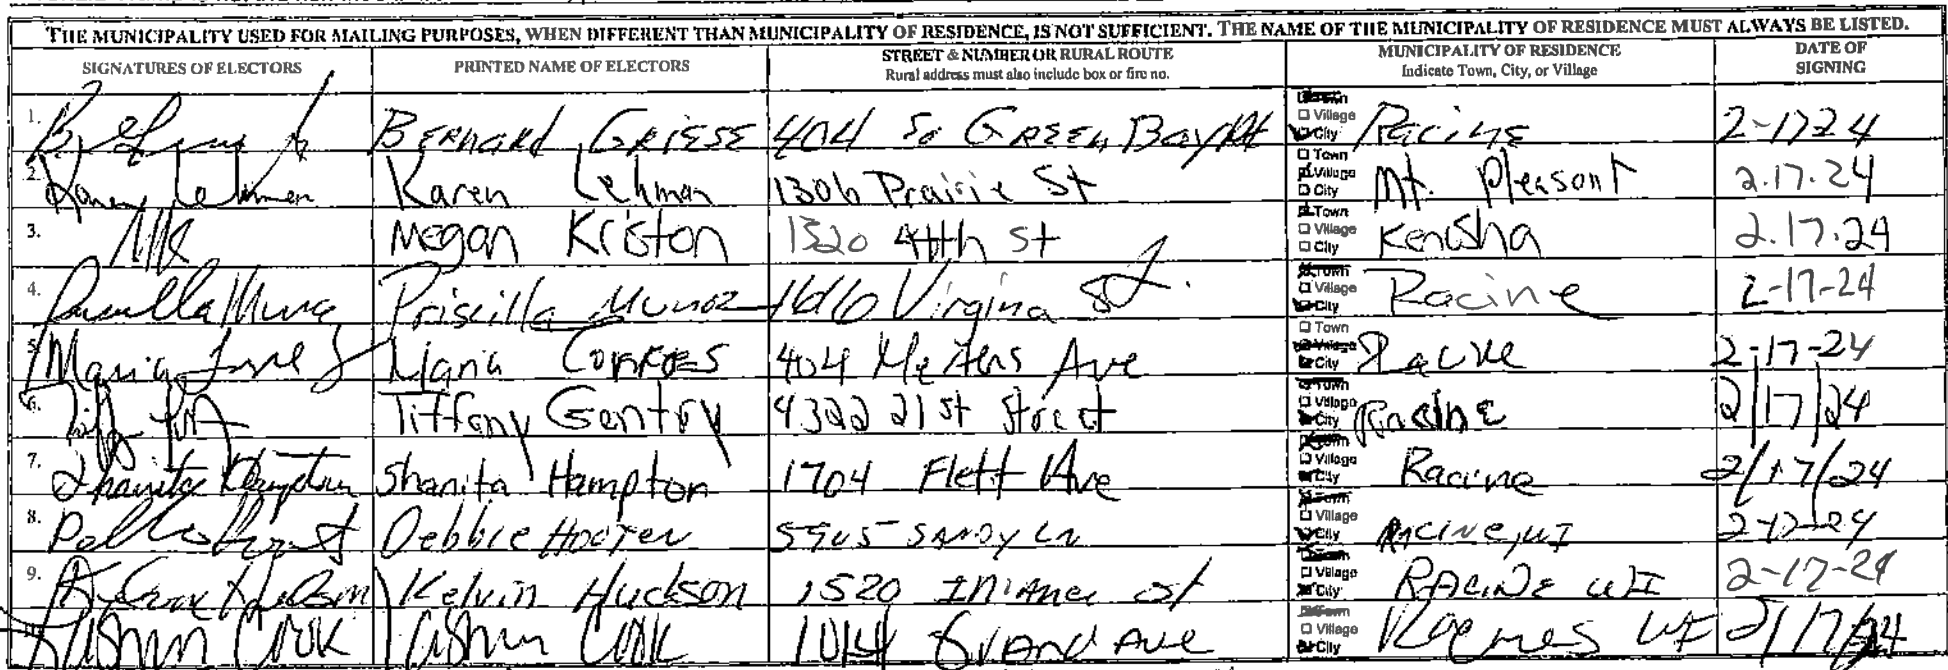 THE MUNICIPALITY USED FOR MAILING PURPOSES, WHEN DIFFERENT THAN MUNICIPALITY OF RESIDENCE, IS NOT SUFFICIENT. THE NAME OF THE MUNICIPALITY OF RESIDENCE MUST ALWAYS BE LISTED.
SIGNATURES OF ELECTORS
PRINTED NAME OF ELECTORS
STREET & NUMBER OR RURAL ROUTE
Rural address must also include box or fire no.
MUNICIPALITY OF RESIDENCE
Indicate Town, City, or Village
DATE OF
SIGNING
1. BERNARD GRIESE 404 So GREEN Bay Rd Town Village City Racine 2-17-24
2. Karen Lehman Karen Lehman 1306 Prairie St Town Village City Mt. Pleasant 2.17.24
3. MK Megan Kriston 1320 44th St Town Village City Kenosha 2.17.24
4. Priscilla Munoz Priscilla Munoz 1616 Virgina St. Town Village City Racine 2-17-24
5. Maria Maria Town Village City Racine 2-17-24
6. Tiffany Gentry 4322 21st Street Town Village City Racine 2/17/24
7. Shanita Hampton Shanita Hampton 1704 Flett Ave Town Village City Racine 2/17/24
8. Debbie 5905 SANDY LN Town Village City RACINE, WI 2-17-24
9. Kelvin Hudson 1520 St Town Village City RACINE WI 2-17-24
10. Cook Cook Grand Ave Town Village City WI 2/17/24